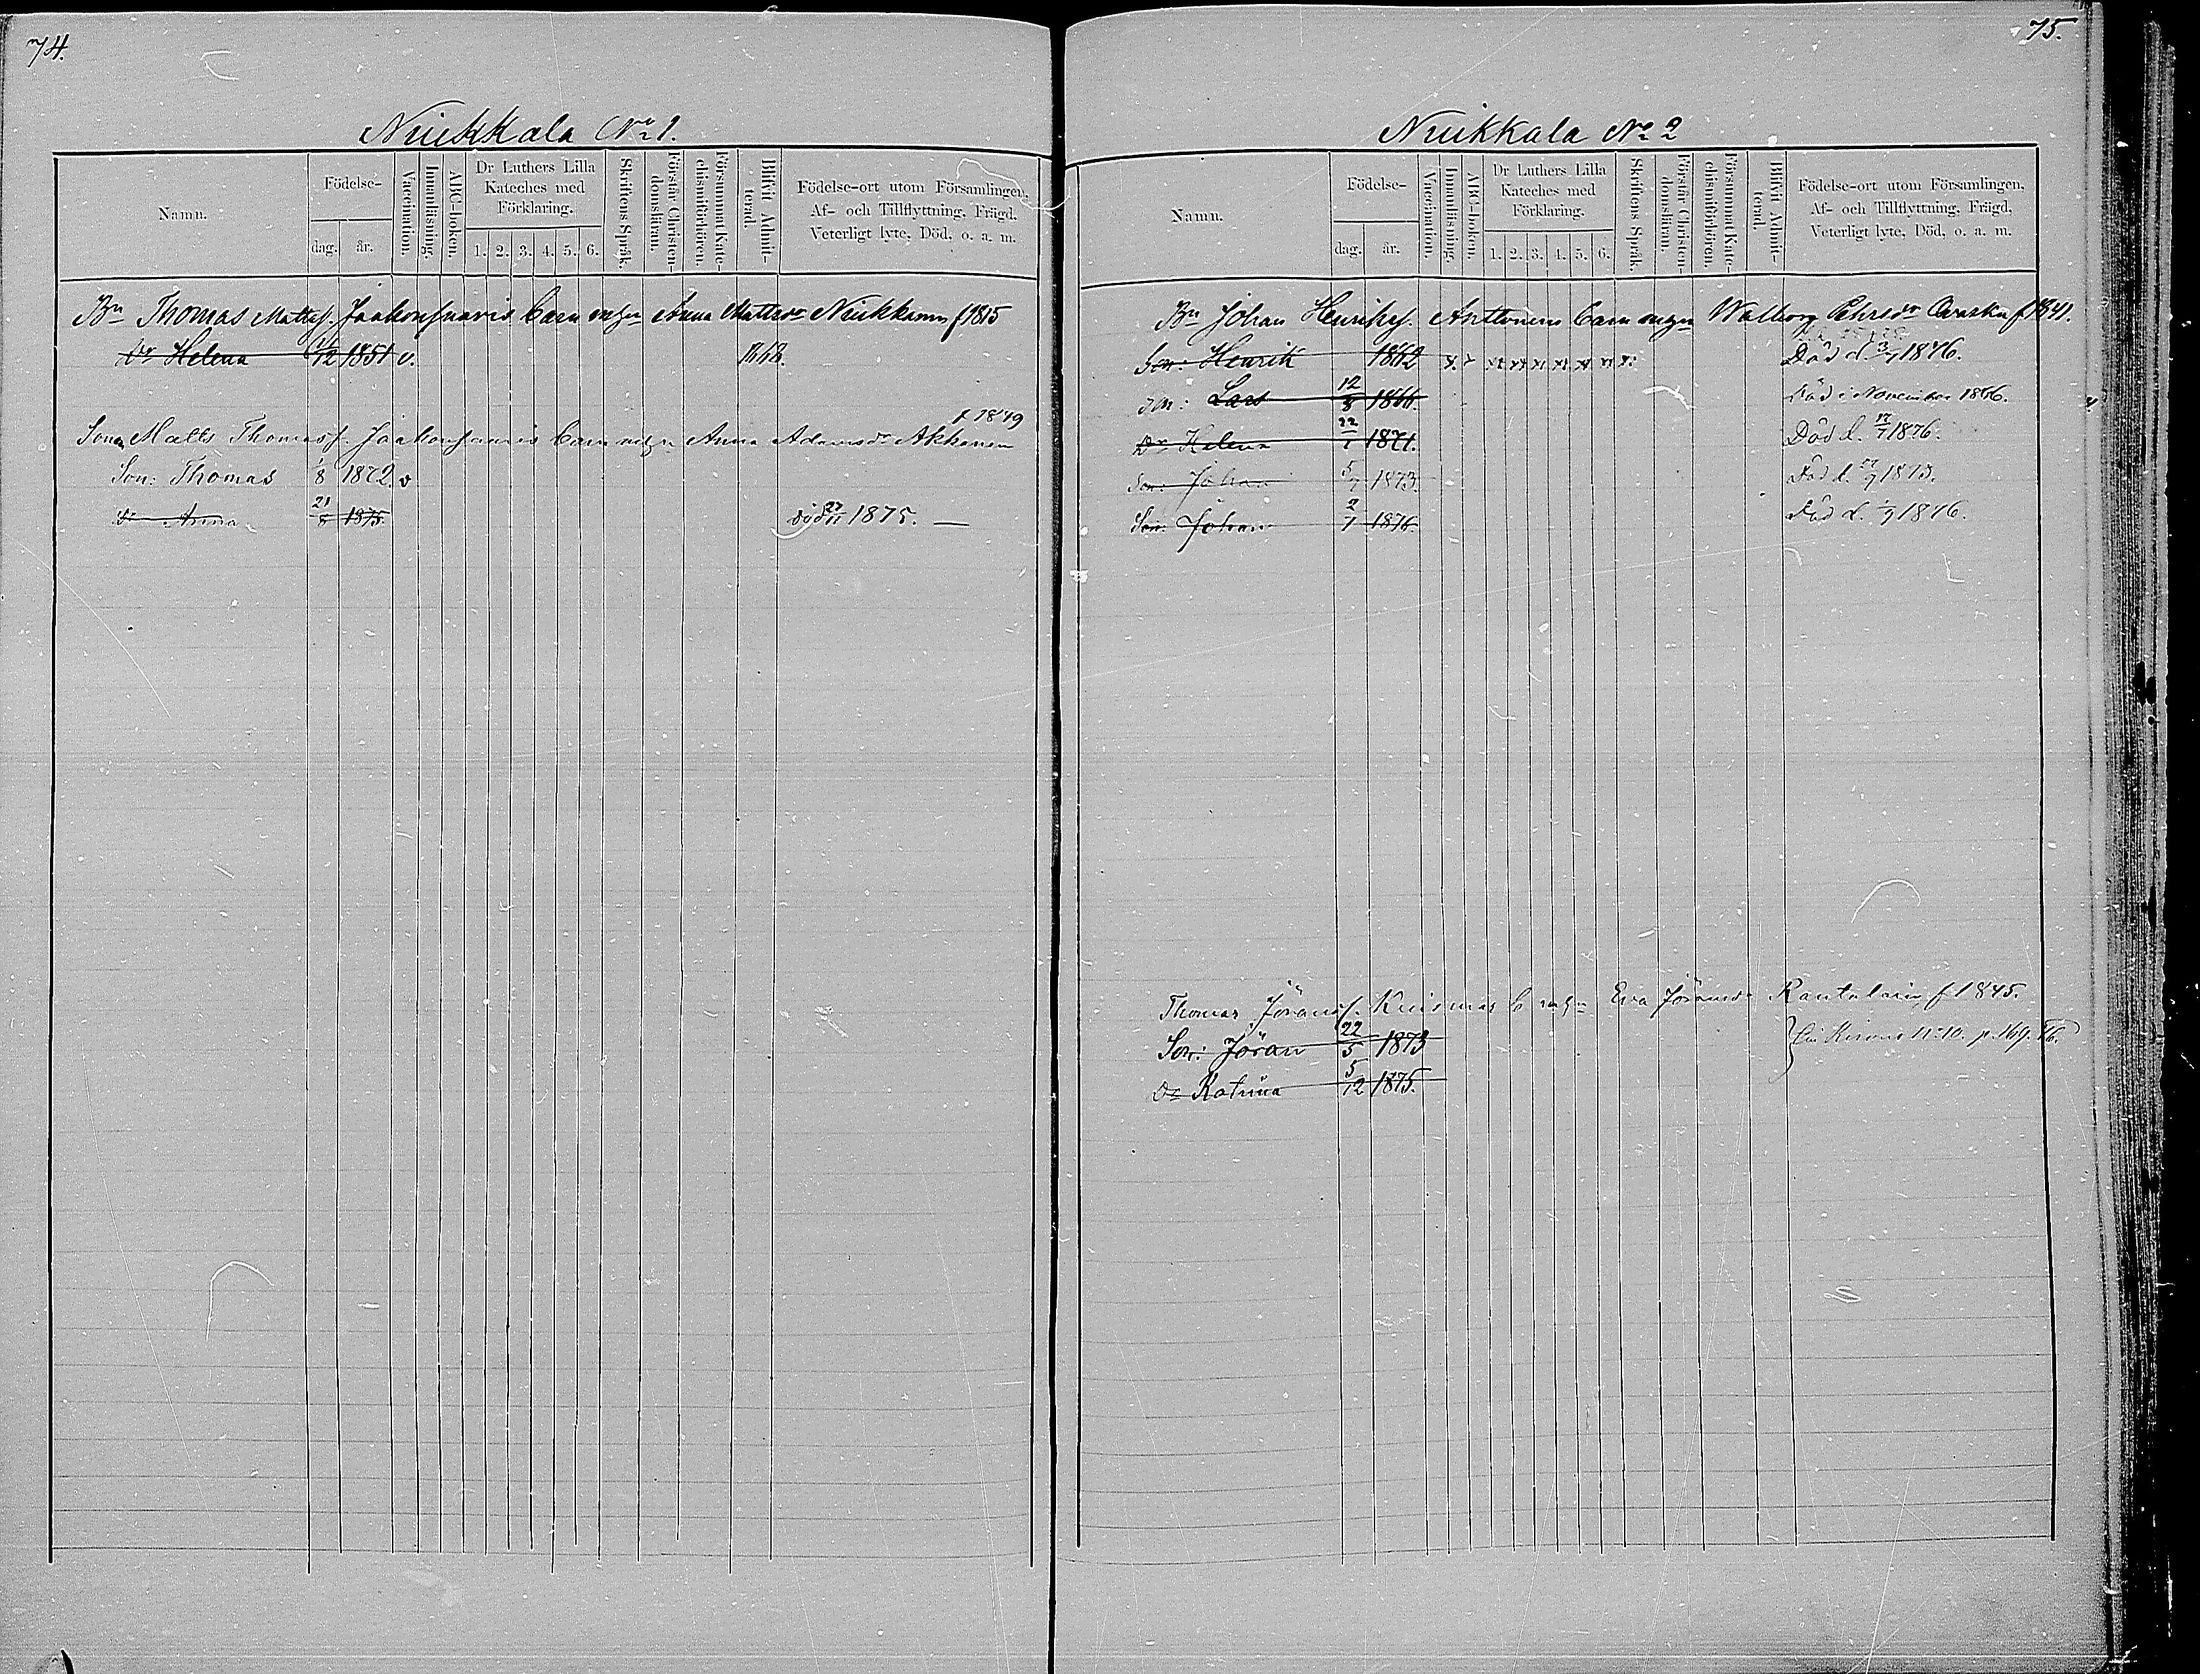 74.
Nuikkala No 1.
Namn.
Födelse-
dag.
år.
Vaccination.
Innanläsning.
ABC-boken.
Dr Luthers Lilla
Kateches med
Förklaring.
1. 2. 3. 4. 5. 6.
Skriftens Språk.
Förstår Christen-
domsläran.
Försummat Kate-
chismiförhören.
Blifvit Admit-
terad.
Födelse-ort utom Församlingen,
Af- och Tillflyttning, Frägd,
Veterligt lyte, Död, o. a. m.
Bn Thomas Mattsf. Barn Anna Mattsdr f 1815
Dr Helena 1851 v. 1868.
f 1849
Sonen Matts Thomasf. Barn Anna Adamsdr Akkanen
Son: Thomas 1/8 1872. v
Dr Anna 21/8 1875. Död 27/11 1875. —
75.
Nuikkala No 2
Namn.
Födelse-
dag.
år.
Vaccination.
Innanläsning.
ABC-boken.
Dr Luthers Lilla
Kateches med
Förklaring.
1. 2. 3. 4. 5. 6.
Skriftens Språk.
Förstår Christen-
domsläran.
Försummat Kate-
chismiförhören.
Blifvit Admit-
terad.
Födelse-ort utom Församlingen,
Af- och Tillflyttning, Frägd,
Veterligt lyte, Död, o. a. m.
Bn Johan Henriksf. Anttonens Barn Walborg Pehrsdr f 1841.
Son: Henrik 1862 Död d. 3/7 1876.
Son: Lars 12/8 1866. Död i November 1866.
Dr Helena 22/1 1871. Död d. 17/7 1876.
Son: Johan 5/7 1873. Död d. 1873.
Son: Johan 2/7 1876 Död d. 1876.
Thomas Jöransf. B Eva Jöransdr Rantalain f 1845.
Son: Jöran 22/5 1873
Dr Katrina 5/12 1875.